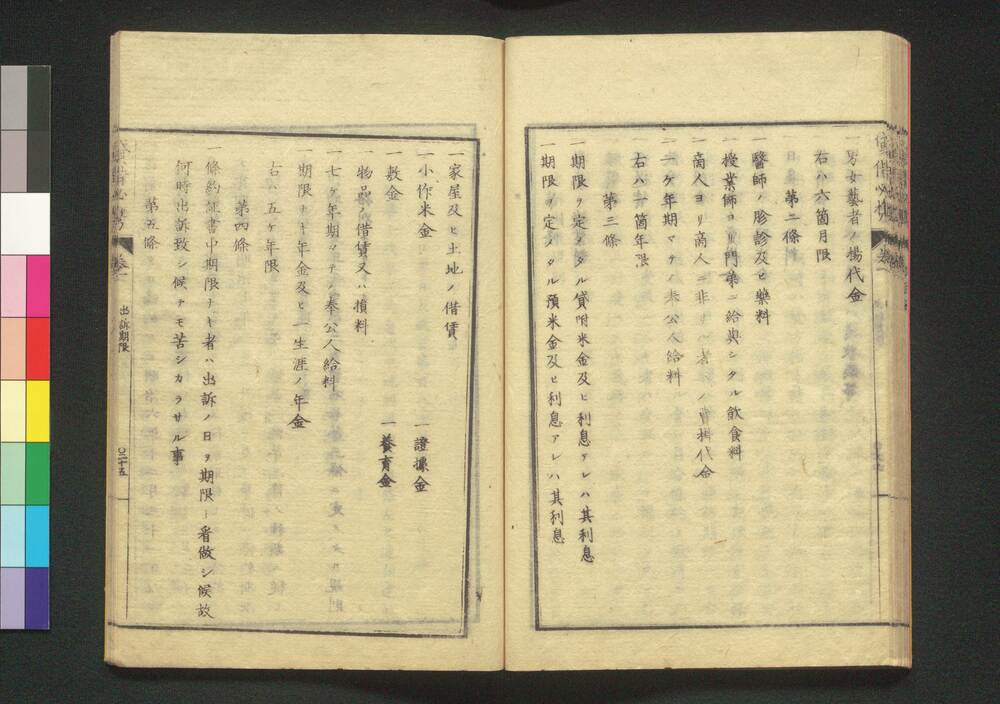 一男女藝者ノ揚代金
右ハ六箇月限
第二條
一醫師ノ診及ヒ藥料
一授業師ヨリ門弟ニ給與シタル飲食料
一商人ヨリ商人ニ非サル者ヘノ賣掛代金
一一ケ年期マテノ奉公人給料
右ハ一箇年限
第三條
一期限ヲ定メタル貸附米金及ヒ利息アレハ其利息
一期限ヲ定メタル預米金及ヒ利息アレハ其利息
一家屋及ヒ土地ノ借賃
一小作米金 一證據金
一敷金 一養育金
一物品ノ借賃又ハ損料
一七ケ年期マテノ奉公人給料
一期限ナキ年金及ヒ一生涯ノ年金
右ハ五ケ年限
第四條
一條約証書中期限ナキ者ハ出訴ノ日ヲ期限ト看做シ候故
何時出訴致シ候テモ苦シカラサル事
第五條
出訴期限
二十五